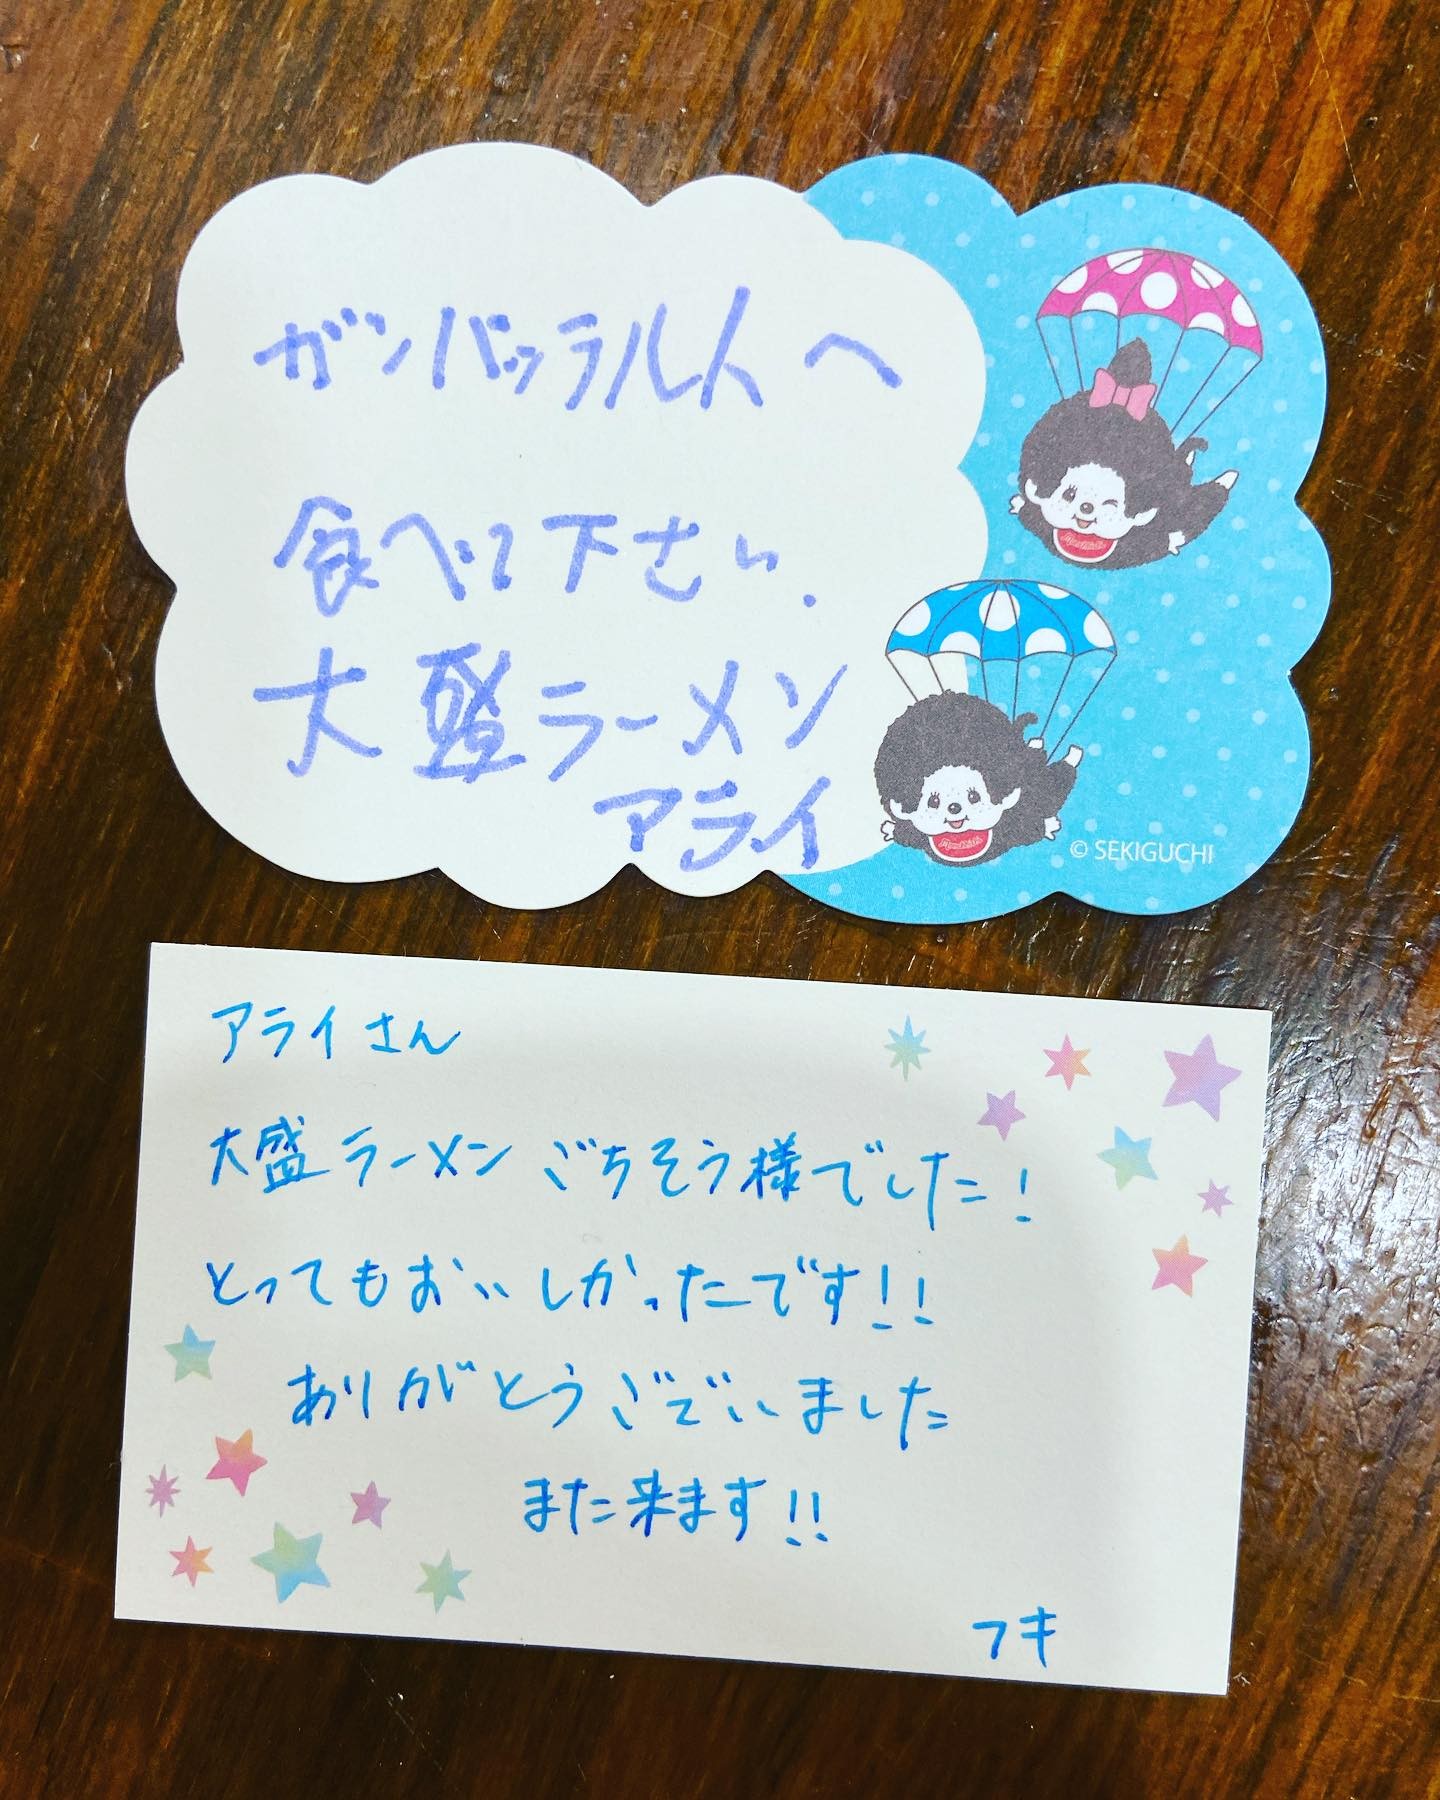 ガンバッテル人へ
食べて下さい.
大盛ラーメン
アライ
© SEKIGUCHI
アライさん
大盛ラーメンごちそう様でした!
とってもおいしかったです!!
ありがとうございました
また来ます!!
フキ